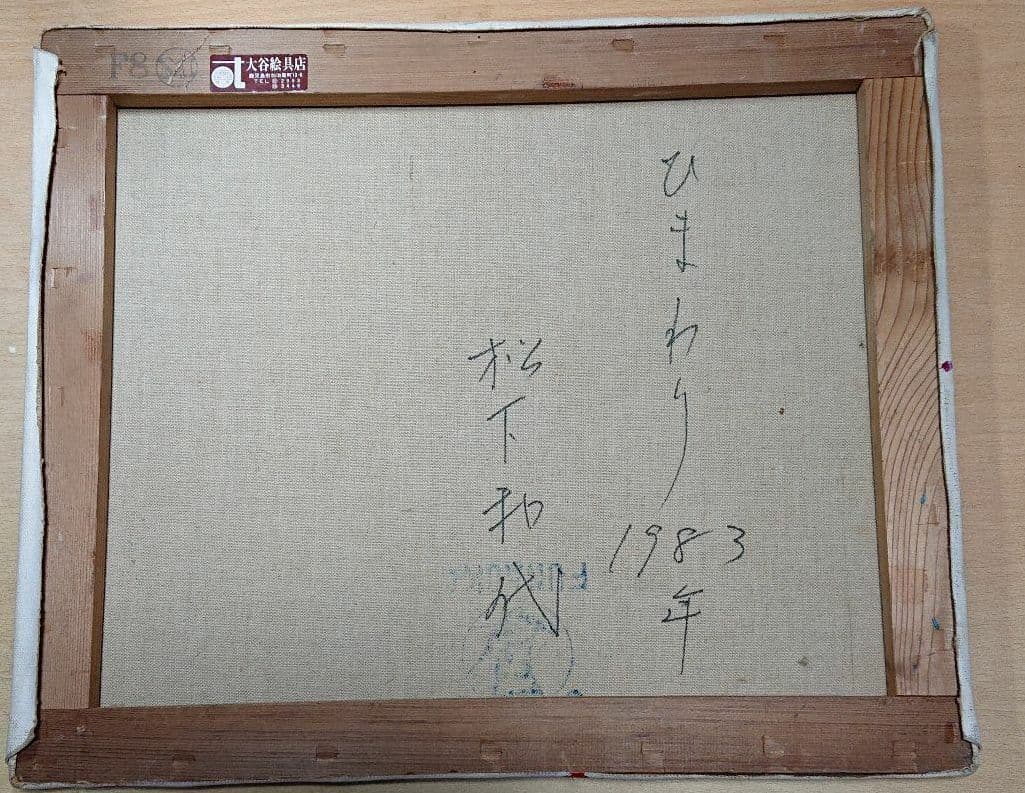 F8
大谷絵具店
TEL
ひまわり
1983
年
松下和